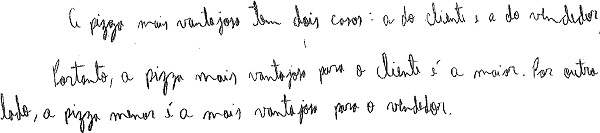 A pizza mais vantajosa tem dois casos: a do cliente e a do vendedor
Portanto, a pizza mais vantajosa para o cliente é a maior. Por outro
lado, a pizza menor é a mais vantajosa para o vendedor.